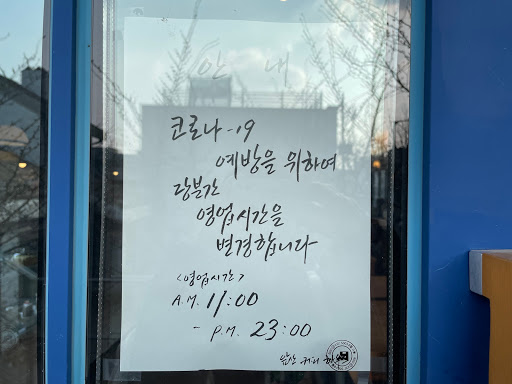 안 내
코로나-19
예방을 위하여
당분간
영업시간을
변경합니다
<영업시간>
A.M. 11:00
- P.M. 23:00
커피